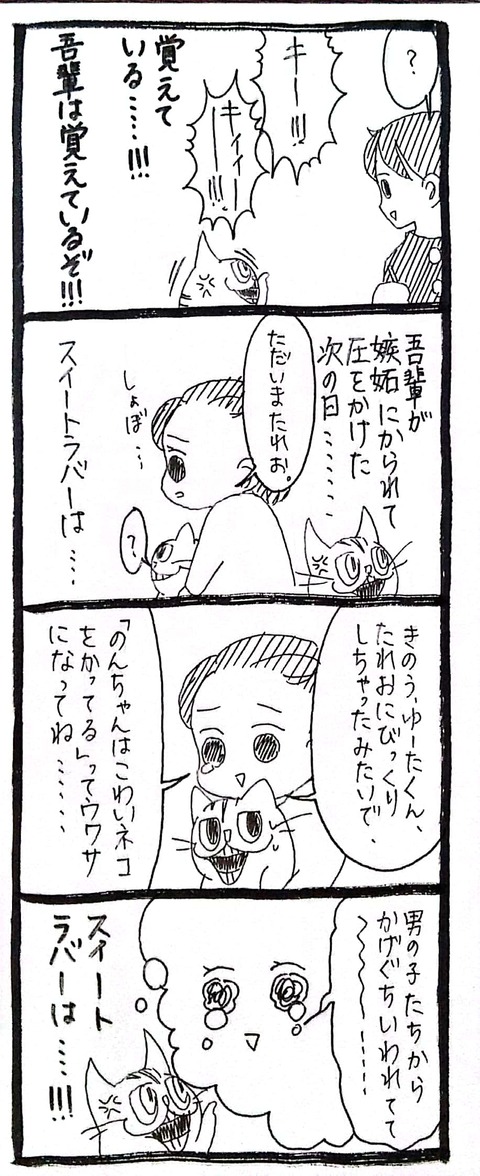 ？
キー!!!
キィィー!!!
覚えて
いる……!!!
吾輩は覚えているぞ!!!
吾輩が
嫉妬にかられて
圧をかけた
次の日……
ただいまたれお。
しょぼ…
？
スイートラバーは……
きのう、ゆーたくん、
たれおにびっくり
しちゃったみたいで、
「のんちゃんはこわいネコ
をかってる」って、ウワサ
になってね……
男の子たちから
かげぐちいわれてて
スイート
ラバーは……!!!